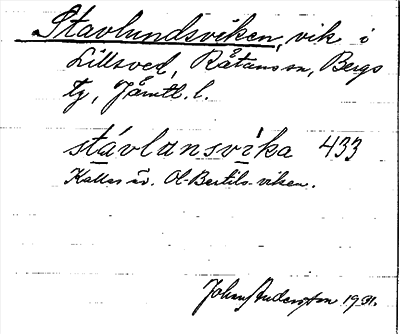 Stavlundsviken, vik i
Lillsved, Råtans sn, Bergs
tg, Jämtl. l.
stávlunsvika 433
Kallas äv. Ol-Bertils-viken.
Johan Anderston 1931.